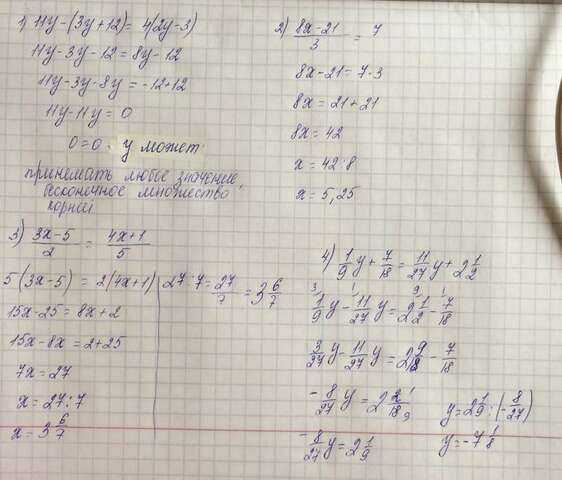 1) 11y-(3y+12)=4(2y-3)
11y-3y-12=8y-12
11y-3y-8y=-12+12
11y-11y=0
0=0. y может
принемать любое значение,
бесконочное множество
корней.
2) (8x-21)/3 = 7
8x-21=7·3
8x=21+21
8x=42
x=42:8
x=5,25
3) (3x-5)/2 = (4x+1)/5
5(3x-5)=2(4x+1)
15x-25=8x+2
15x-8x=2+25
7x=27
x=27:7
x=3 6/7
27:7=27/7=3 6/7
4) 1/9 y+7/18=11/27 y+2 1/2
1/9 y-11/27 y=2 1/2-7/18
3/27 y-11/27 y=2 9/18-7/18
-8/27 y=2 2/18
-8/27 y=2 1/9
y=2 1/9:(-8/27)
y=-7 1/8